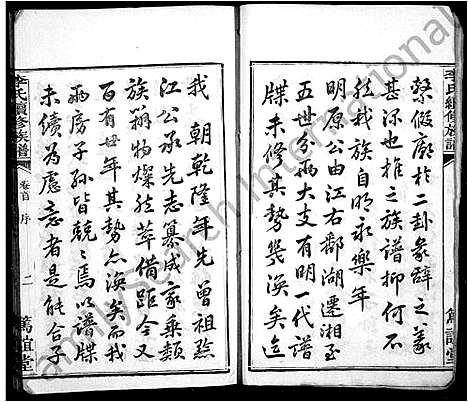 李氏續修族譜
繫假廟於二卦彖辭之義
甚深也推之族譜抑何不
然我族自明永樂年
明原公由江右鄱湖遷湘至
五世分為兩大支有明一代譜
牒未修其勢幾渙矣迄
篤誼堂
我 朝乾隆年先曾祖點
江公承先志纂成家乘類
族辨物燦然萃備距今又
百有廿年其勢亦渙矣而我
兩房子孫皆兢兢焉以譜牒
未續為慮意者是能合子
李氏續修族譜
卷首 序 二
篤誼堂
FamilySearch International